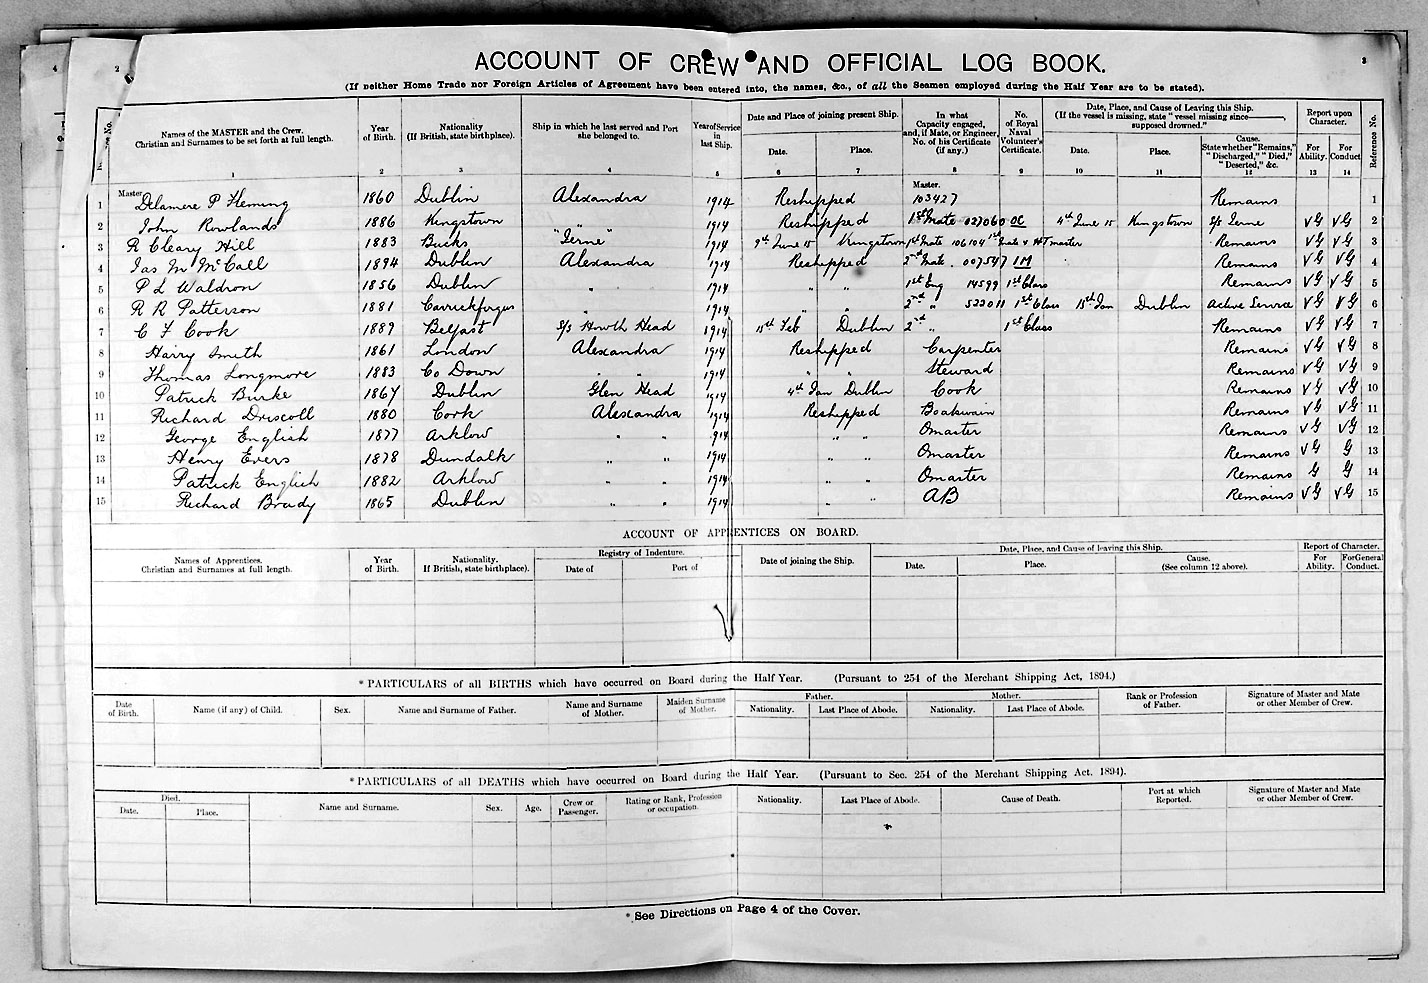 4
2
3
ACCOUNT OF CREW AND OFFICIAL LOG BOOK.
(If neither Home Trade nor Foreign Articles of Agreement have been entered into, the names, &c., of all the Seamen employed during the Half Year are to be stated).
No. Names of the MASTER and the Crew. Christian and Surnames to be set forth at full length. Year of Birth. Nationality (If British, state birthplace). Ship in which he last served and Port she belonged to. Year of Service in last Ship. Date and Place of joining present Ship. Date. Place. In what Capacity engaged, and, if Mate, or Engineer, No. of his Certificate (if any.) No. of Royal Naval Volunteer's Certificate. Date, Place, and Cause of Leaving this Ship. (If the vessel is missing, state "vessel missing since ———, supposed drowned." Date. Place. Cause. State whether "Remains," "Discharged," "Died," "Deserted," &c. Report upon Character. For Ability. For Conduct Reference No.
1 2 3 4 5 6 7 8 9 10 11 12 13 14
Master Master.
1 Delamere P Fleming 1860 Dublin Alexandra 1914 Reshipped 103427 Remains 1
2 John Rowlands 1886 Kingstown " 1914 Reshipped 1st Mate 027060 OC 4th June 15 Kingstown S/s Ierne VG VG 2
3 R Cleary Hill 1883 Bucks "Ierne" 1914 9th June 15 Kingstown 1st Mate 106104 1st Mate & HT master Remains VG VG 3
4 Jas M McCall 1894 Dublin Alexandra 1914 Reshipped 2nd Mate. 007547 1M Remains VG VG 4
5 P L Waldron 1856 Dublin " 1914 " " 1st Eng 14599 1st Class Remains VG VG 5
6 R R Patterson 1881 Carrickfergus " 1914 " " 2nd " 522011 1st Class 15th Jan Dublin Active Service VG VG 6
7 C F Cook 1889 Belfast S/s Howth Head 1914 11th Feb Dublin 2nd " 1st Class Remains VG VG 7
8 Harry Smith 1861 London Alexandra 1914 Reshipped Carpenter Remains VG VG 8
9 Thomas Longmore 1883 Co Down " " 1914 " " Steward Remains VG VG 9
10 Patrick Burke 1867 Dublin Glen Head 1914 4th Jan Dublin Cook Remains VG VG 10
11 Richard Driscoll 1880 Cork Alexandra 1914 Reshipped Boatswain Remains VG VG 11
12 George English 1877 Arklow " " 1914 " " Qmaster Remains VG VG 12
13 Henry Evers 1878 Dundalk " " 1914 " " Qmaster Remains VG G 13
14 Patrick English 1882 Arklow " " 1914 " " Qmaster Remains G G 14
15 Richard Brady 1865 Dublin " " 1914 " " AB Remains VG VG 15
ACCOUNT OF APPRENTICES ON BOARD.
Names of Apprentices. Christian and Surnames at full length. Year of Birth. Nationality. If British, state birthplace). Registry of Indenture. Date of Port of Date of joining the Ship. Date, Place, and Cause of leaving this Ship. Date. Place. Cause. (See column 12 above). Report of Character. For Ability. For General Conduct.
*PARTICULARS of all BIRTHS which have occurred on Board during the Half Year. (Pursuant to 254 of the Merchant Shipping Act, 1894.)
Date of Birth. Name (if any) of Child. Sex. Name and Surname of Father. Name and Surname of Mother. Maiden Surname of Mother. Father. Nationality. Last Place of Abode. Mother. Nationality. Last Place of Abode. Rank or Profession of Father. Signature of Master and Mate or other Member of Crew.
*PARTICULARS of all DEATHS which have occurred on Board during the Half Year. (Pursuant to Sec. 254 of the Merchant Shipping Act. 1894).
Died. Date. Place. Name and Surname. Sex. Age. Crew or Passenger. Rating or Rank, Profession or occupation. Nationality. Last Place of Abode. Cause of Death. Port at which Reported. Signature of Master and Mate or other Member of Crew.
*See Directions on Page 4 of the Cover.